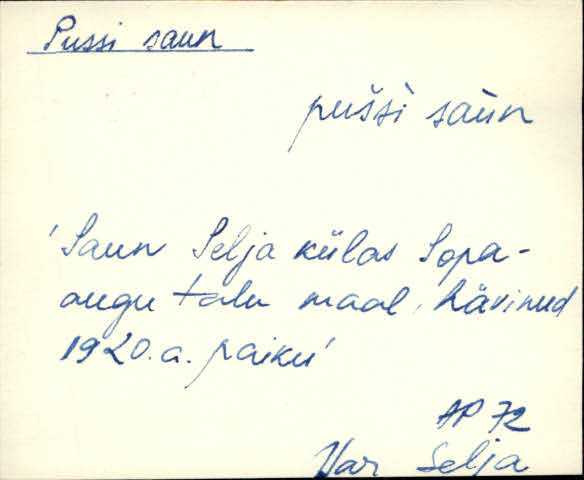 Pussi saun
pušši saùn
'Saun Selja külas Sopa-
augu talu maal, hävinud
1920.a. paiku'
AP 72
Var Selja